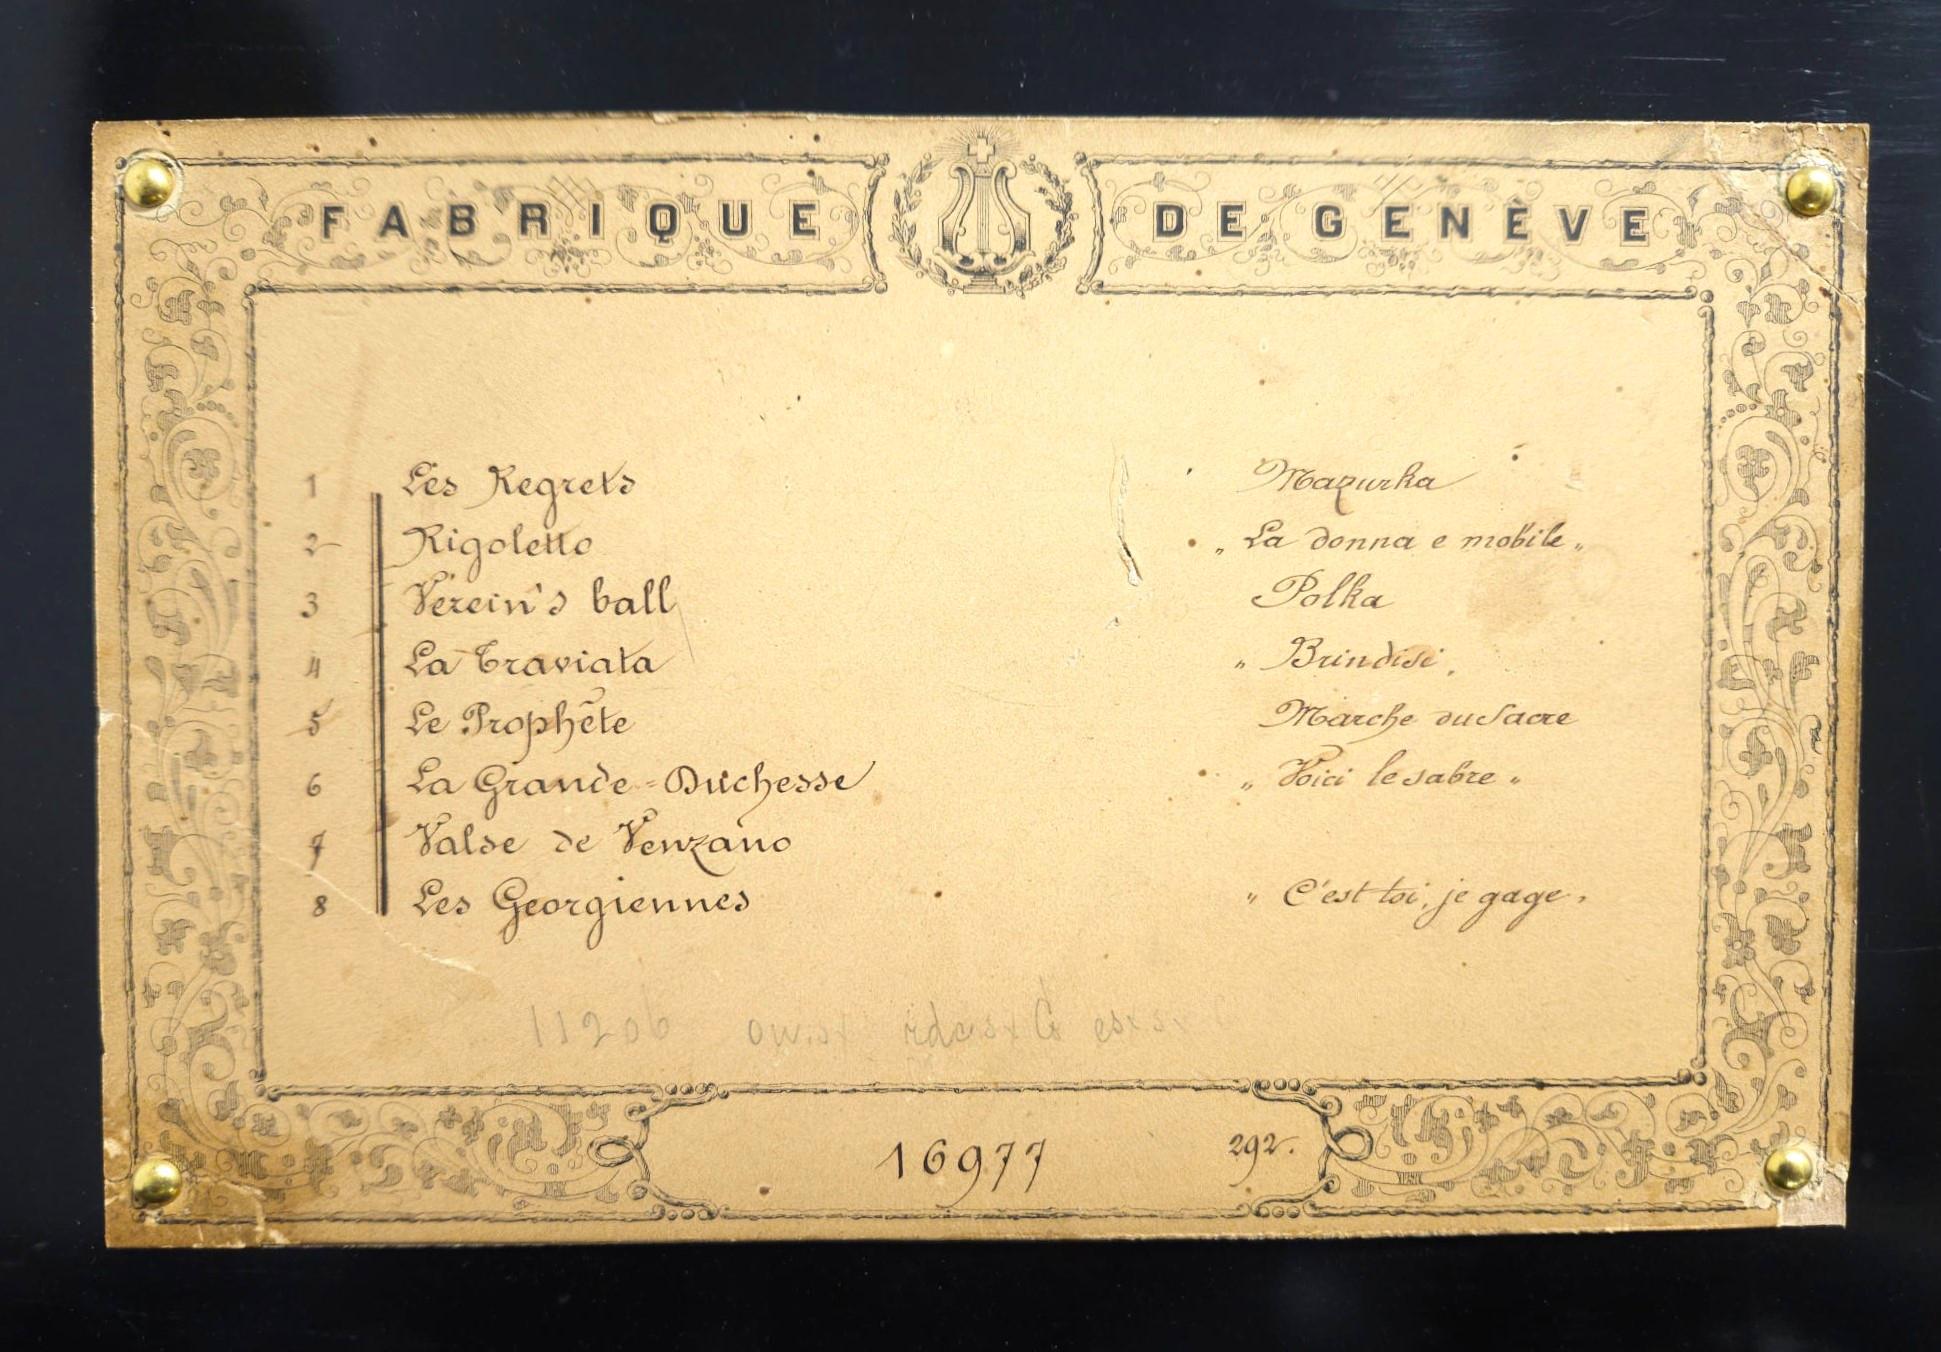 FABRIQUE DE GENÈVE
1 Les Regrets Mazurka
2 Rigoletto „ La donna e mobile „
3 Verein's ball Polka
4 La Traviata „ Brindisi.
5 Le Prophète Marche du Sacre
6 La Grande=Duchesse „ Voici le sabre „
7 Valse de Venzano
8 Les Georgiennes „ C'est toi, je gage „
11206
16977 292.